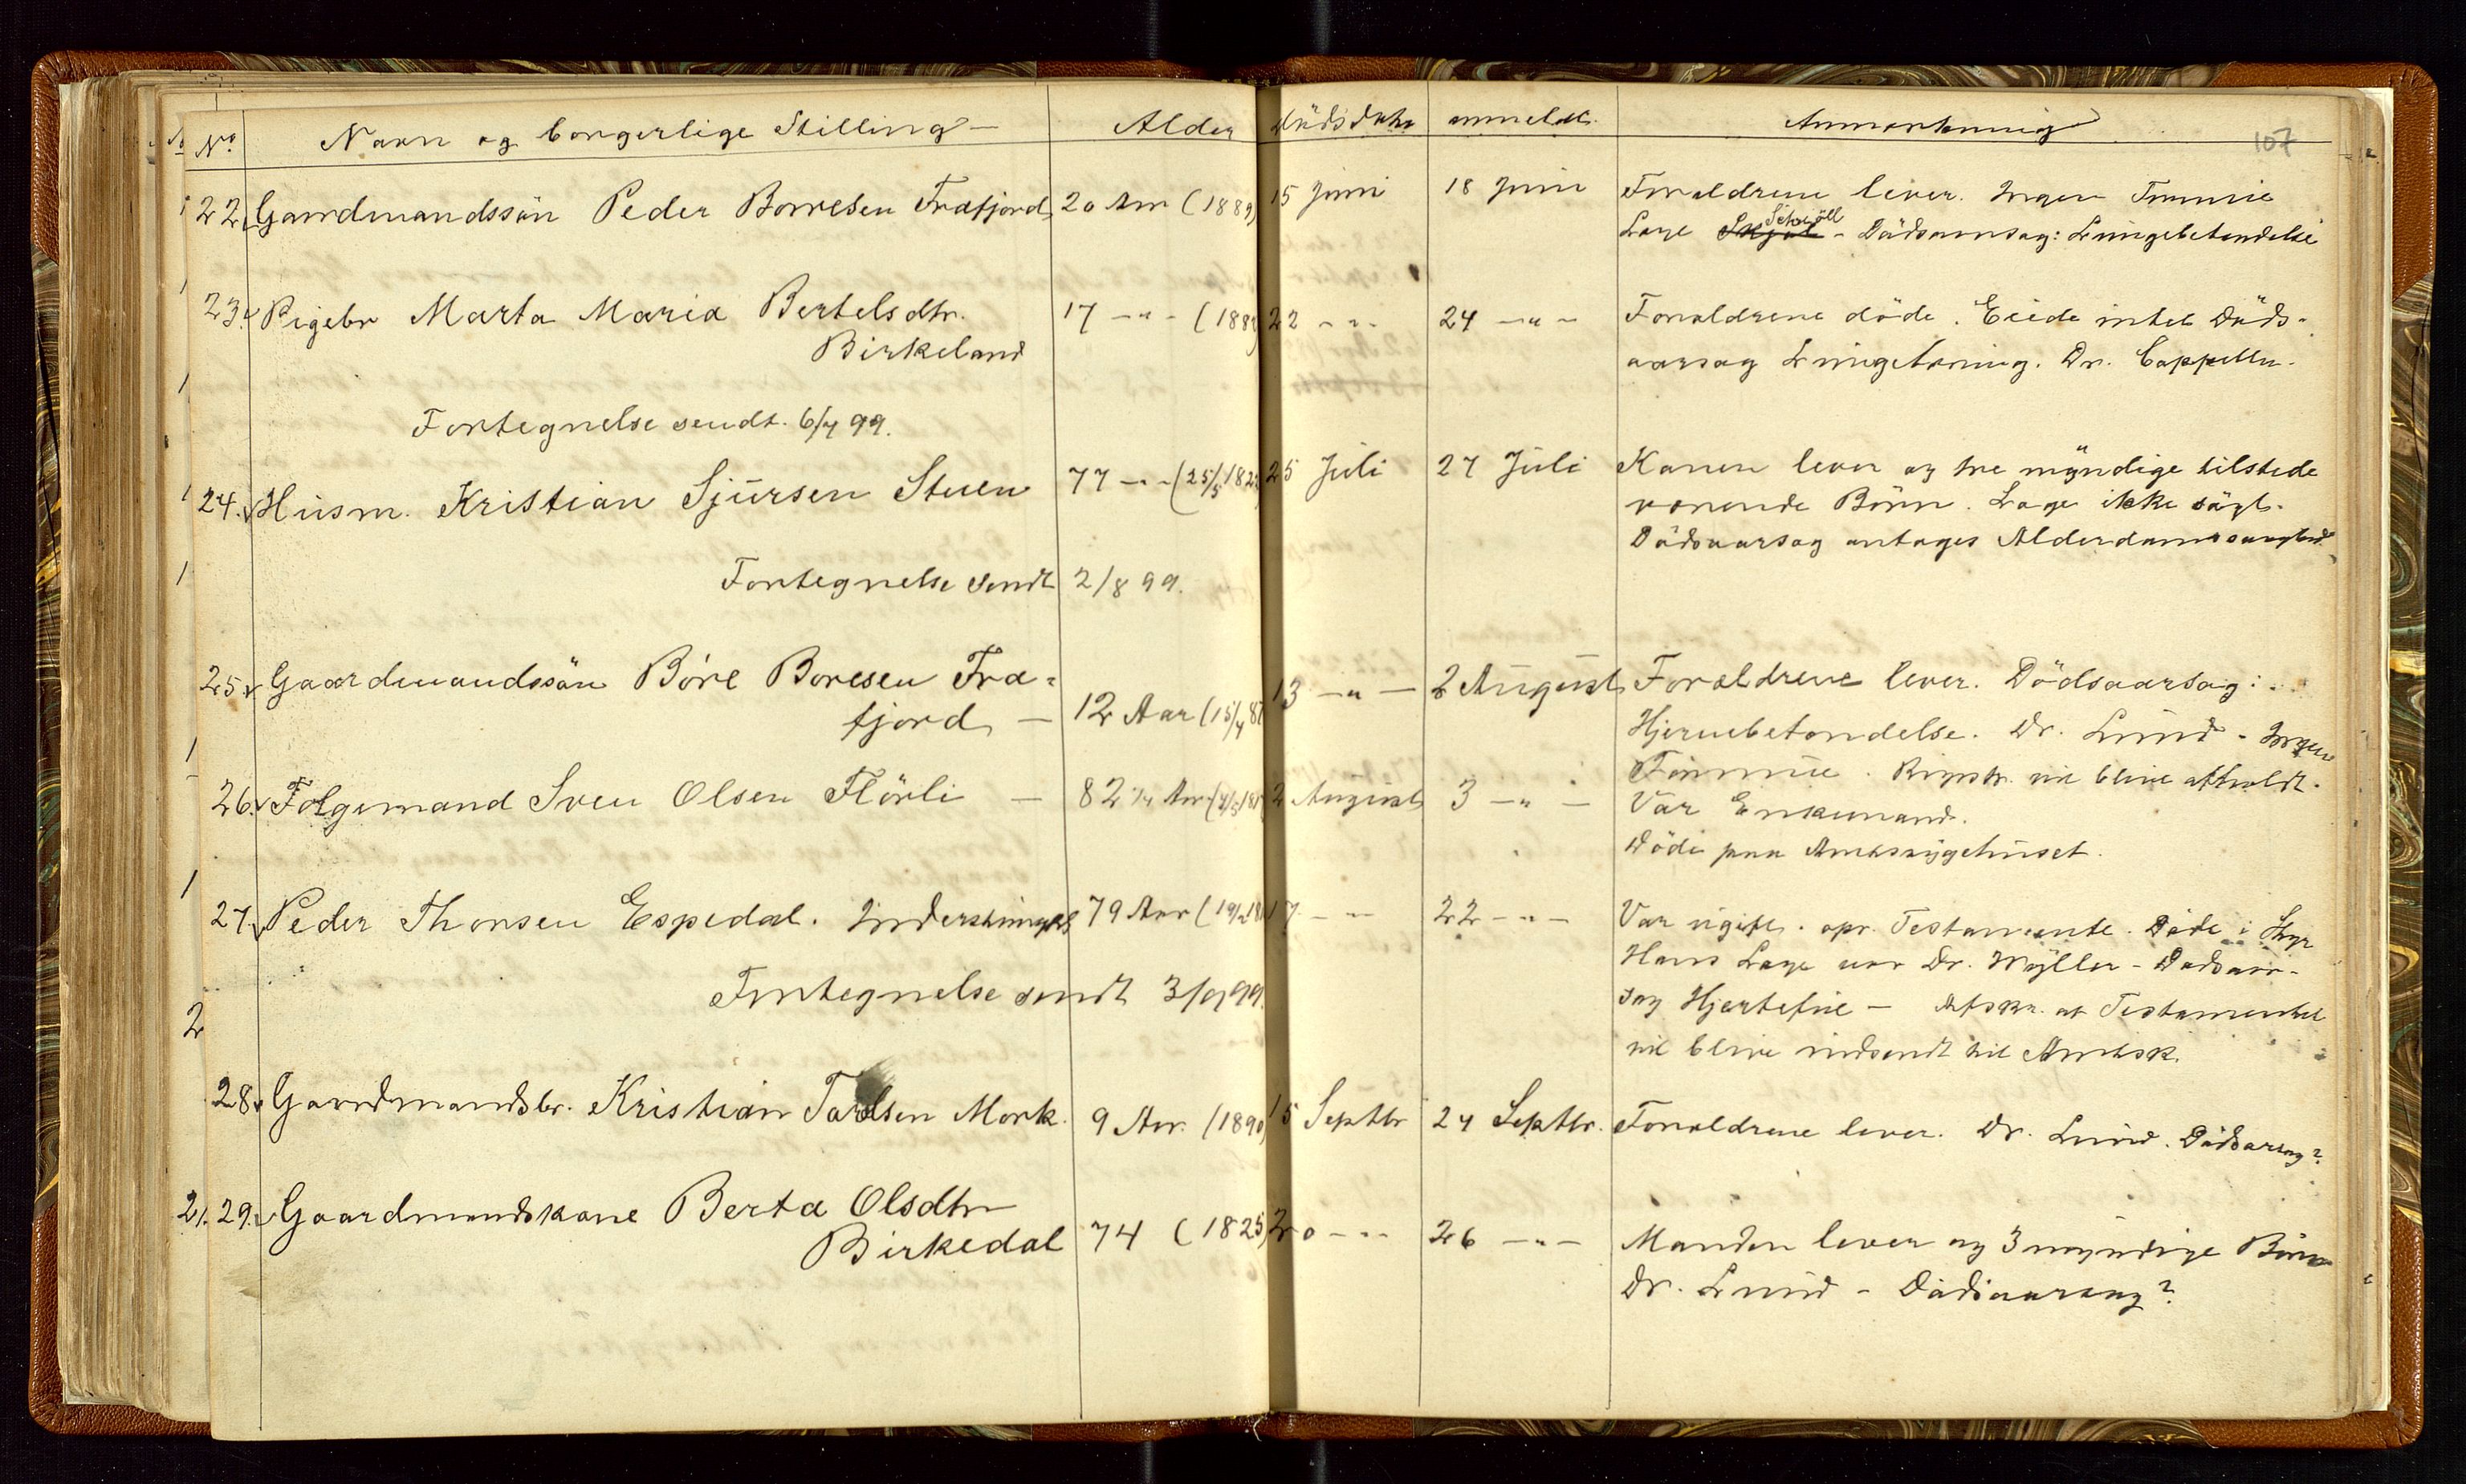 No. Navn og borgerlige Stilling — Alder Dödsdato anmeldt. Anmerkning 107
22. Gaardmandssön Peder Borresen Frafjord 20 Aar (1889) 15 Juni 18 Juni Foraldrene lever. Ingen Formue
Læge Skjöl Schröll - Dödsaarsag: Lungebetendelse
23. Pigebr Marta Maria Bertelsdtr. 17 -"- (188 22 -"- 24 -"- Foraldrene döde. Eiede intet Döds-
Birkeland aarsag Lungetæring. Dr. Cappelen.
Fortegnelse sendt. 6/7 99.
24. Husm. Kristian Sjursen Stuen 77 -"- (25/5 1822 25 Juli 27 Juli Konen lever og tre myndige tilstede
værende Börn. Læge ikke sögt.
Dödsaarsag antages Alderdomssvaghed
Fortegnelse sendt 2/8 99.
25. Gaardmandssön Böre Boresen Fra-
fjord — 12 Aar (15/4 87 13 -"- 2 August Foraldrene lever. Dödsaarsag:
Hjernebetændelse. Dr. Lund - Ingen
Formue. Registr. vil blive afholdt.
26. Folgemand Sven Olsen Flörli — 82 1/4 Aar 2 August 3 -"- Var Enkemand.
Döde paa Amtssygehuset.
27. Peder Thorsen Espedal. Inderst 79 Aar 17 -"- 22 -"- Var ugift. opr. Testamente. Döde i
Hans Læge var Dr. Myller - Dødsaar-
sag Hjertefeil — Afskr. af Testamentet
vil blive indsendt til Amtsk.
Fortegnelse sendt 3/9 99.
28. Gaardmandsbr. Kristian Taralsen Mork. 9 Aar. (1890) 15 Septbr 24 Septbr. Foraldrene lever. Dr. Lund. Dödsarsag?
21. 29. Gaardmandskone Berta Olsdtr
Birkedal 74 (1825) 20 -"- 26 -"- Manden lever og 3 myndige Börn
Dr. Lund - Dödsaarsag?